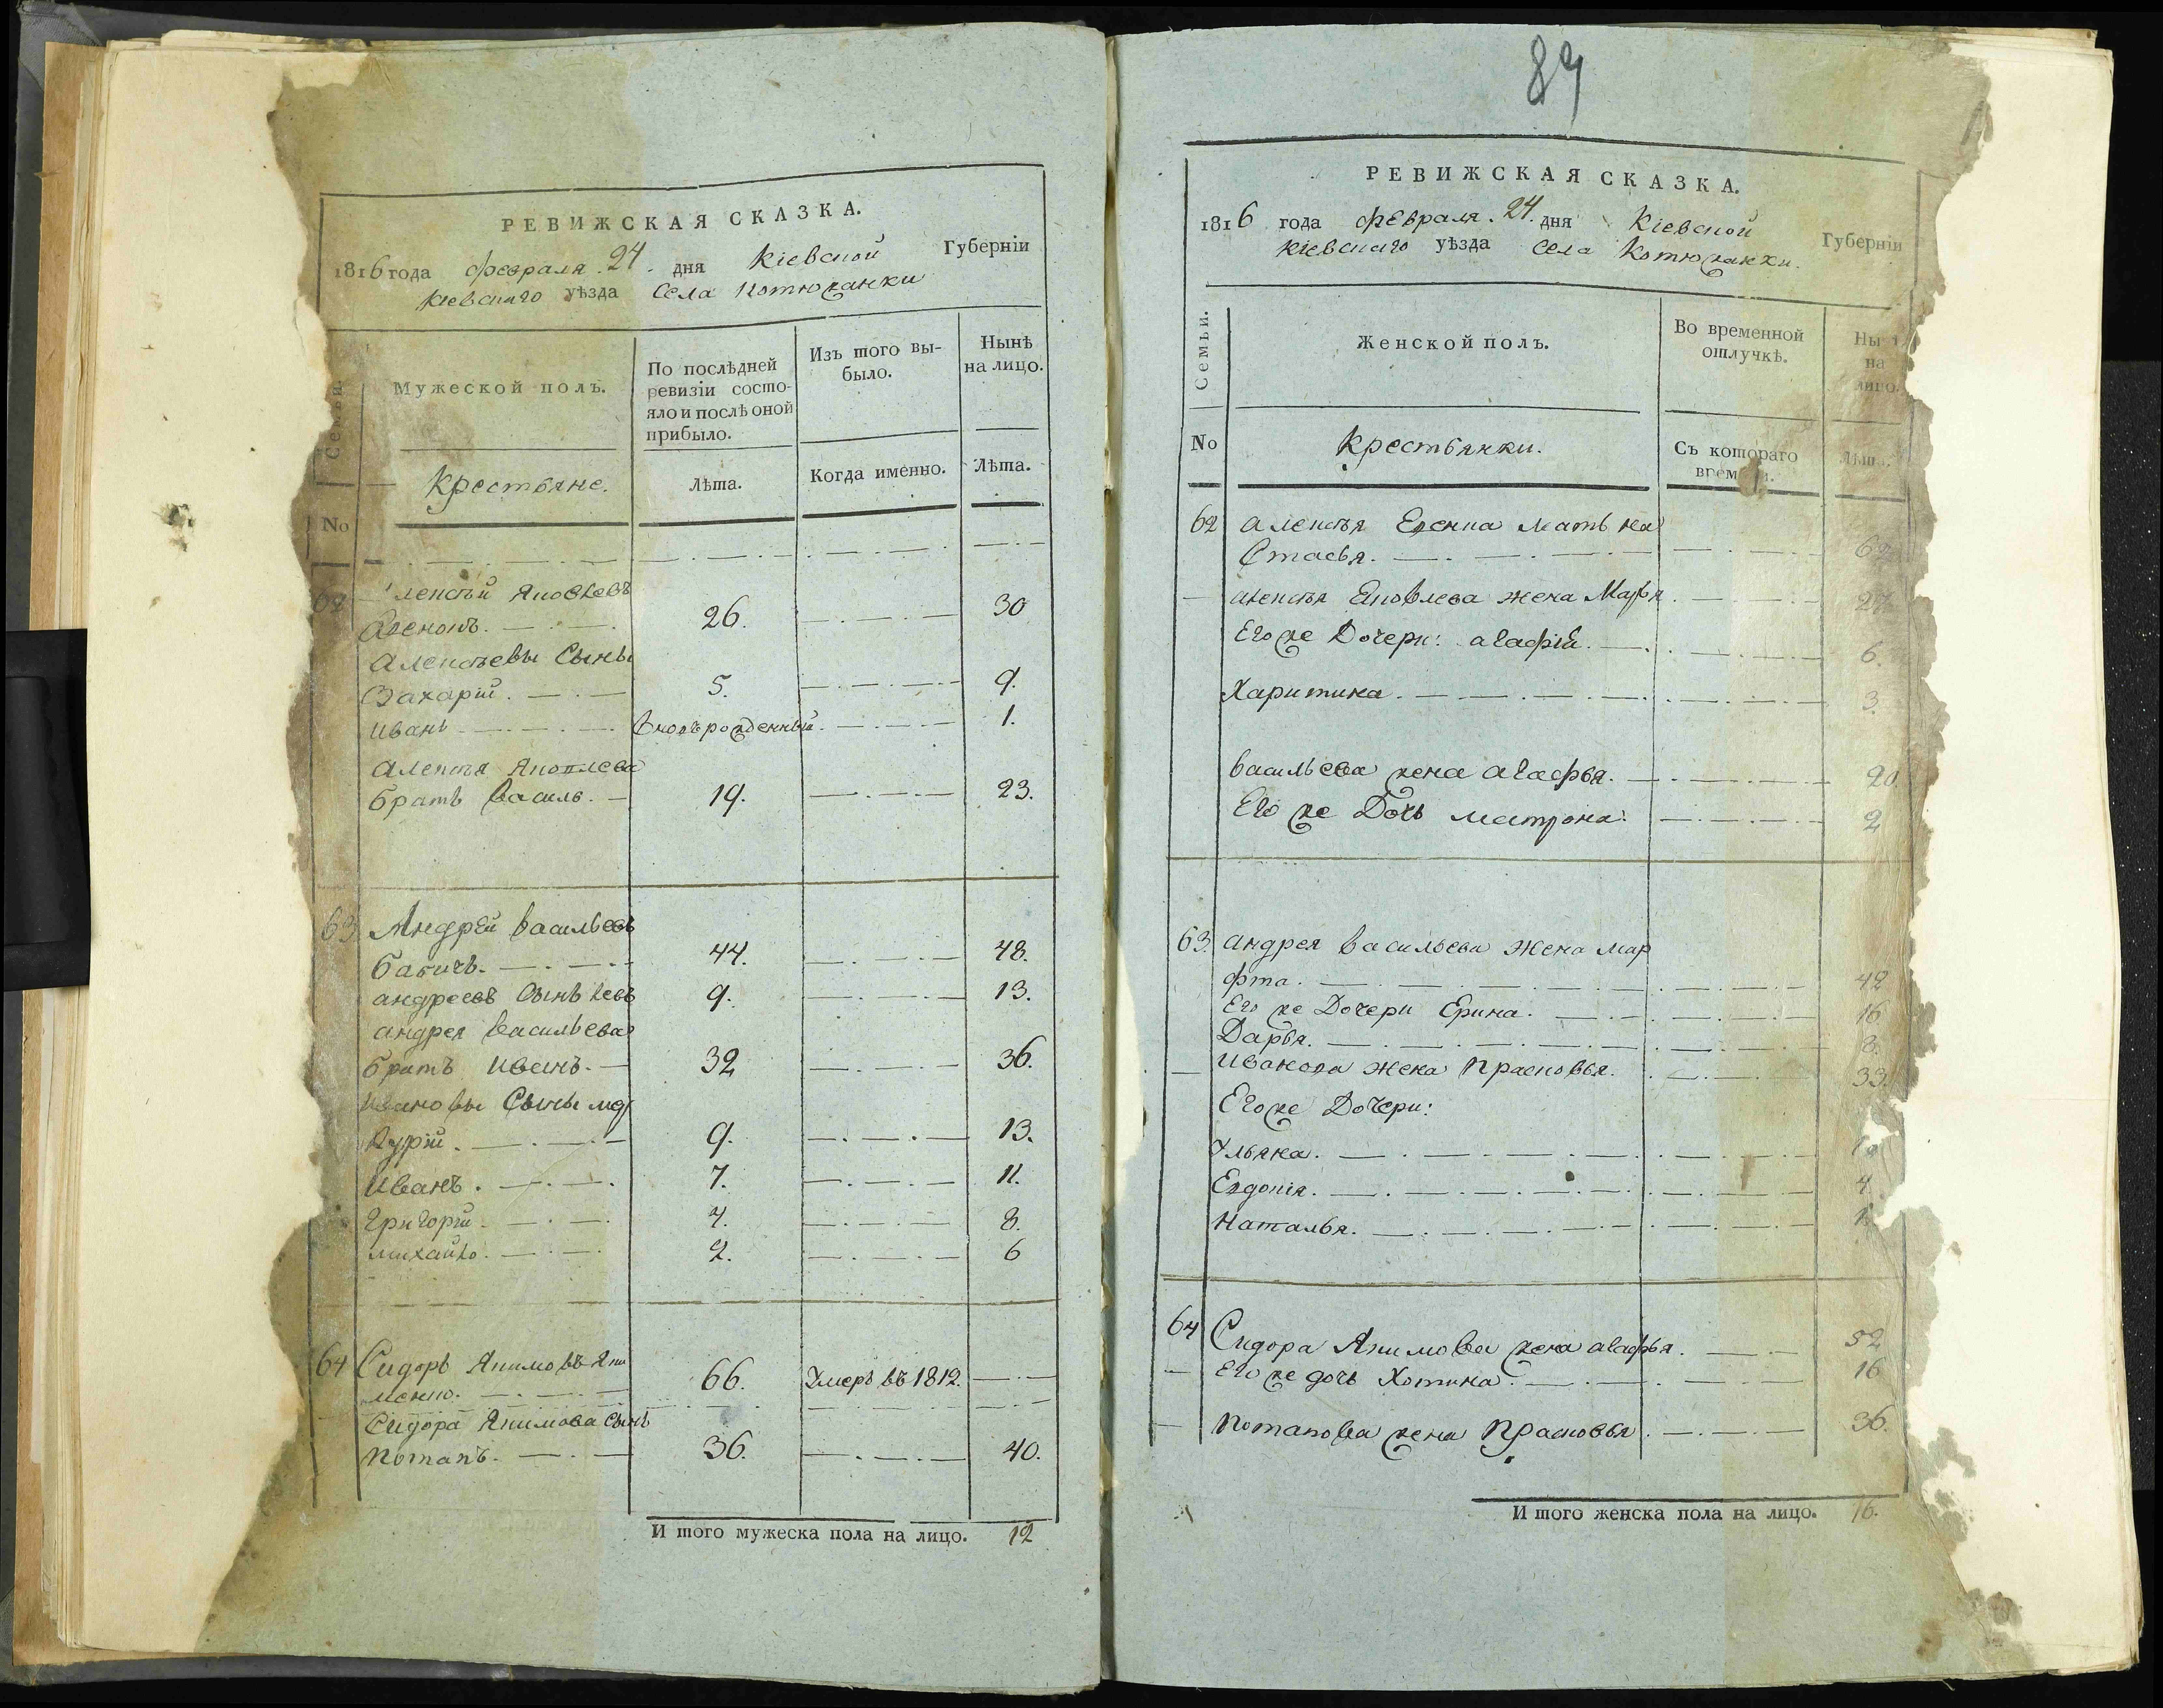 РЕВИЖСКАЯ СКАЗКА.
1816 года февраля 24 дня Кіевской Губерніи
Кіевскаго уѣзда Села Котюжанки
Семьи.
Мужеской полъ.
По послѣдней ревизіи состояло и послѣ оной прибыло.
Изъ того выбыло.
Нынѣ на лицо.
No
Крестьяне.
Лѣта.
Когда именно.
Лѣта.
62 Алексѣй Яковлевъ
26. 30
Алексѣевы Сыны
Захарій. 5. 9.
Иванъ Вновърожденный. 1.
Алексѣя Яковлева
братъ Василь. 19. 23.
63 Андрей Васильевъ
Бабичъ. 44. 48.
андреевъ Сынъ Левъ 9. 13.
андрея Васильева
братъ Иванъ. 32 36.
Ивановы Сыны
9. 13.
Иванъ. 7. 11.
Григорій. 4. 8.
михайло. 2. 6
64 Сидоръ Якимовъ Яки
менко. 66. Умеръ въ 1812.
Сидора Якимова Сынъ
Потапъ. 36. 40.
И того мужеска пола на лицо. 12
89
РЕВИЖСКАЯ СКАЗКА.
1816 года февраля. 24. дня Кіевской Губерніи
Кіевскаго уѣзда Села Котюжанки.
Семьи.
Женской полъ.
Во временной отлучкѣ.
Ны
на
лицо.
No
Крестьянки.
Съ котораго
врем и.
Лѣта.
62 Алексѣя мать На
стасья. 62
Алексѣя Яковлева жена Марья. 27
Егоже Дочери: агафія. 6.
Харитина. 3.
Васильева жена агафья. 20.
Его же Дочь матрона. 2
63 андрея Васильева жена мар
фта. 42
Его же Дочери Ерина. 16
Дарья. 8.
Иванова жена Прасковья. 33.
Егоже Дочери:
Ульяна.
Евдокія. 4
Наталья.
64 Сидора Якимова жена агафья. 52
Его же дочь Хотина. 16
Потапова жена Прасковья. 36.
И того женска пола на лицо. 16.